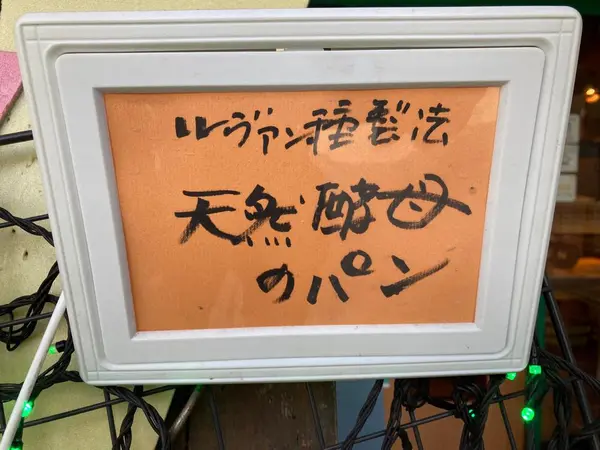 ルヴァン種製法
天然酵母
のパン